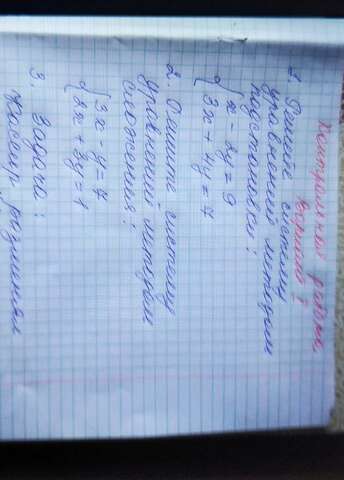 Контрольная работа.
Вариант 1
1. Решите систему
уравнений методом
подстановки:
{ x - 2y = 9
3x + 4y = 7
2. Решите систему
уравнений методом
сложения:
{ 3x - y = 7
2x + 3y = 1
3. Задача:
Кассир разменял